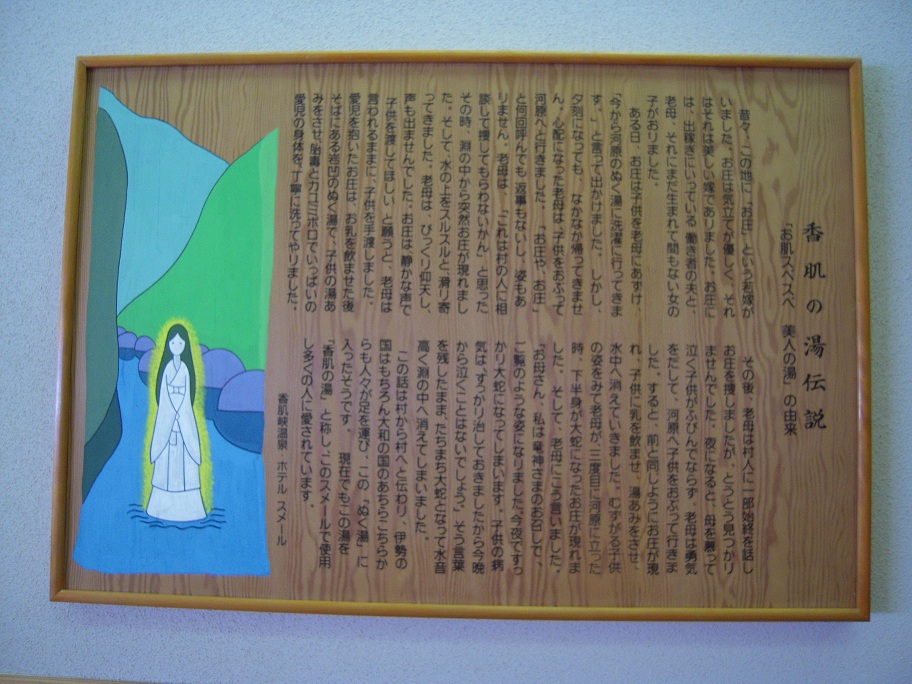 香肌の湯伝説
「お肌スベスベ　美人の湯」の由来
昔々、この地に「お庄」という若嫁が
いました。お庄は気立てが優しく、それ
はそれは美しい嫁でありました。お庄に
は、出稼ぎにいっている働き者の夫と、
老母、それにまだ生まれて間もない女の
子がおりました。
ある日、お庄は子供を老母にあずけ、
「今から河原のぬく湯に洗濯に行ってきま
す。」と言って出かけました。しかし、
夕刻になっても、なかなか帰ってきませ
ん。心配になった老母は、子供をおぶって
河原へと行きました。「お庄や、お庄」
と何回呼んでも、返事もないし、姿もあ
りません。老母は、「これは村の人に相
談して捜してもらわないかん」と思った
その時、淵の中から突然お庄が現れまし
た。そして、水の上をスルスルと、滑り寄
ってきました。老母は、びっくり仰天し、
声も出ませんでした。お庄は静かな声で
子供を渡してほしい、と願うと、老母は
言われるままに、子供を手渡しました。
愛児を抱いたお庄は、お乳を飲ませた後
そばにある岩凹のぬく湯で、子供の湯あ
みをさせ、胎毒とカロニボロでいっぱいの
愛児の身体を、丁寧に洗ってやりました。
その後、老母は村人に一部始終を話し
お庄を捜しましたが、とうとう見つかり
ませんでした。夜になると、母を慕って
泣く子供がふびんでならず、老母は勇気
をだして、河原へ子供をおぶって行きま
した。すると、前と同じようにお庄が現
れ、子供に乳を飲ませ、湯あみをさせ、
水中へ消えていきました。むずがる子供
の姿をみて老母が、三度目に河原に立った
時、下半身が大蛇になったお庄が現れま
した。そして、老母にこう言いました。
「お母さん、私は竜神さまのお召しで、
ご覧のような姿になりました。今夜ですっ
かり大蛇になってしまいます。子供の病
気は、すっかり治しておきましたから今晩
から泣くことはないでしょう。」そう言葉
を残したまま、たちまち大蛇となって水音
高く淵の中へ消えてしまいました。
この話は村から村へと伝わり、伊勢の
国はもちろん大和の国のあちらこちらか
らも人々が足を運び、この、「ぬく湯」に
入ったそうです。　現在でもこの湯を
「香肌の湯」と称し、このスメールで使用
し多くの人に愛されています。
香肌峡温泉・ホテル　スメール